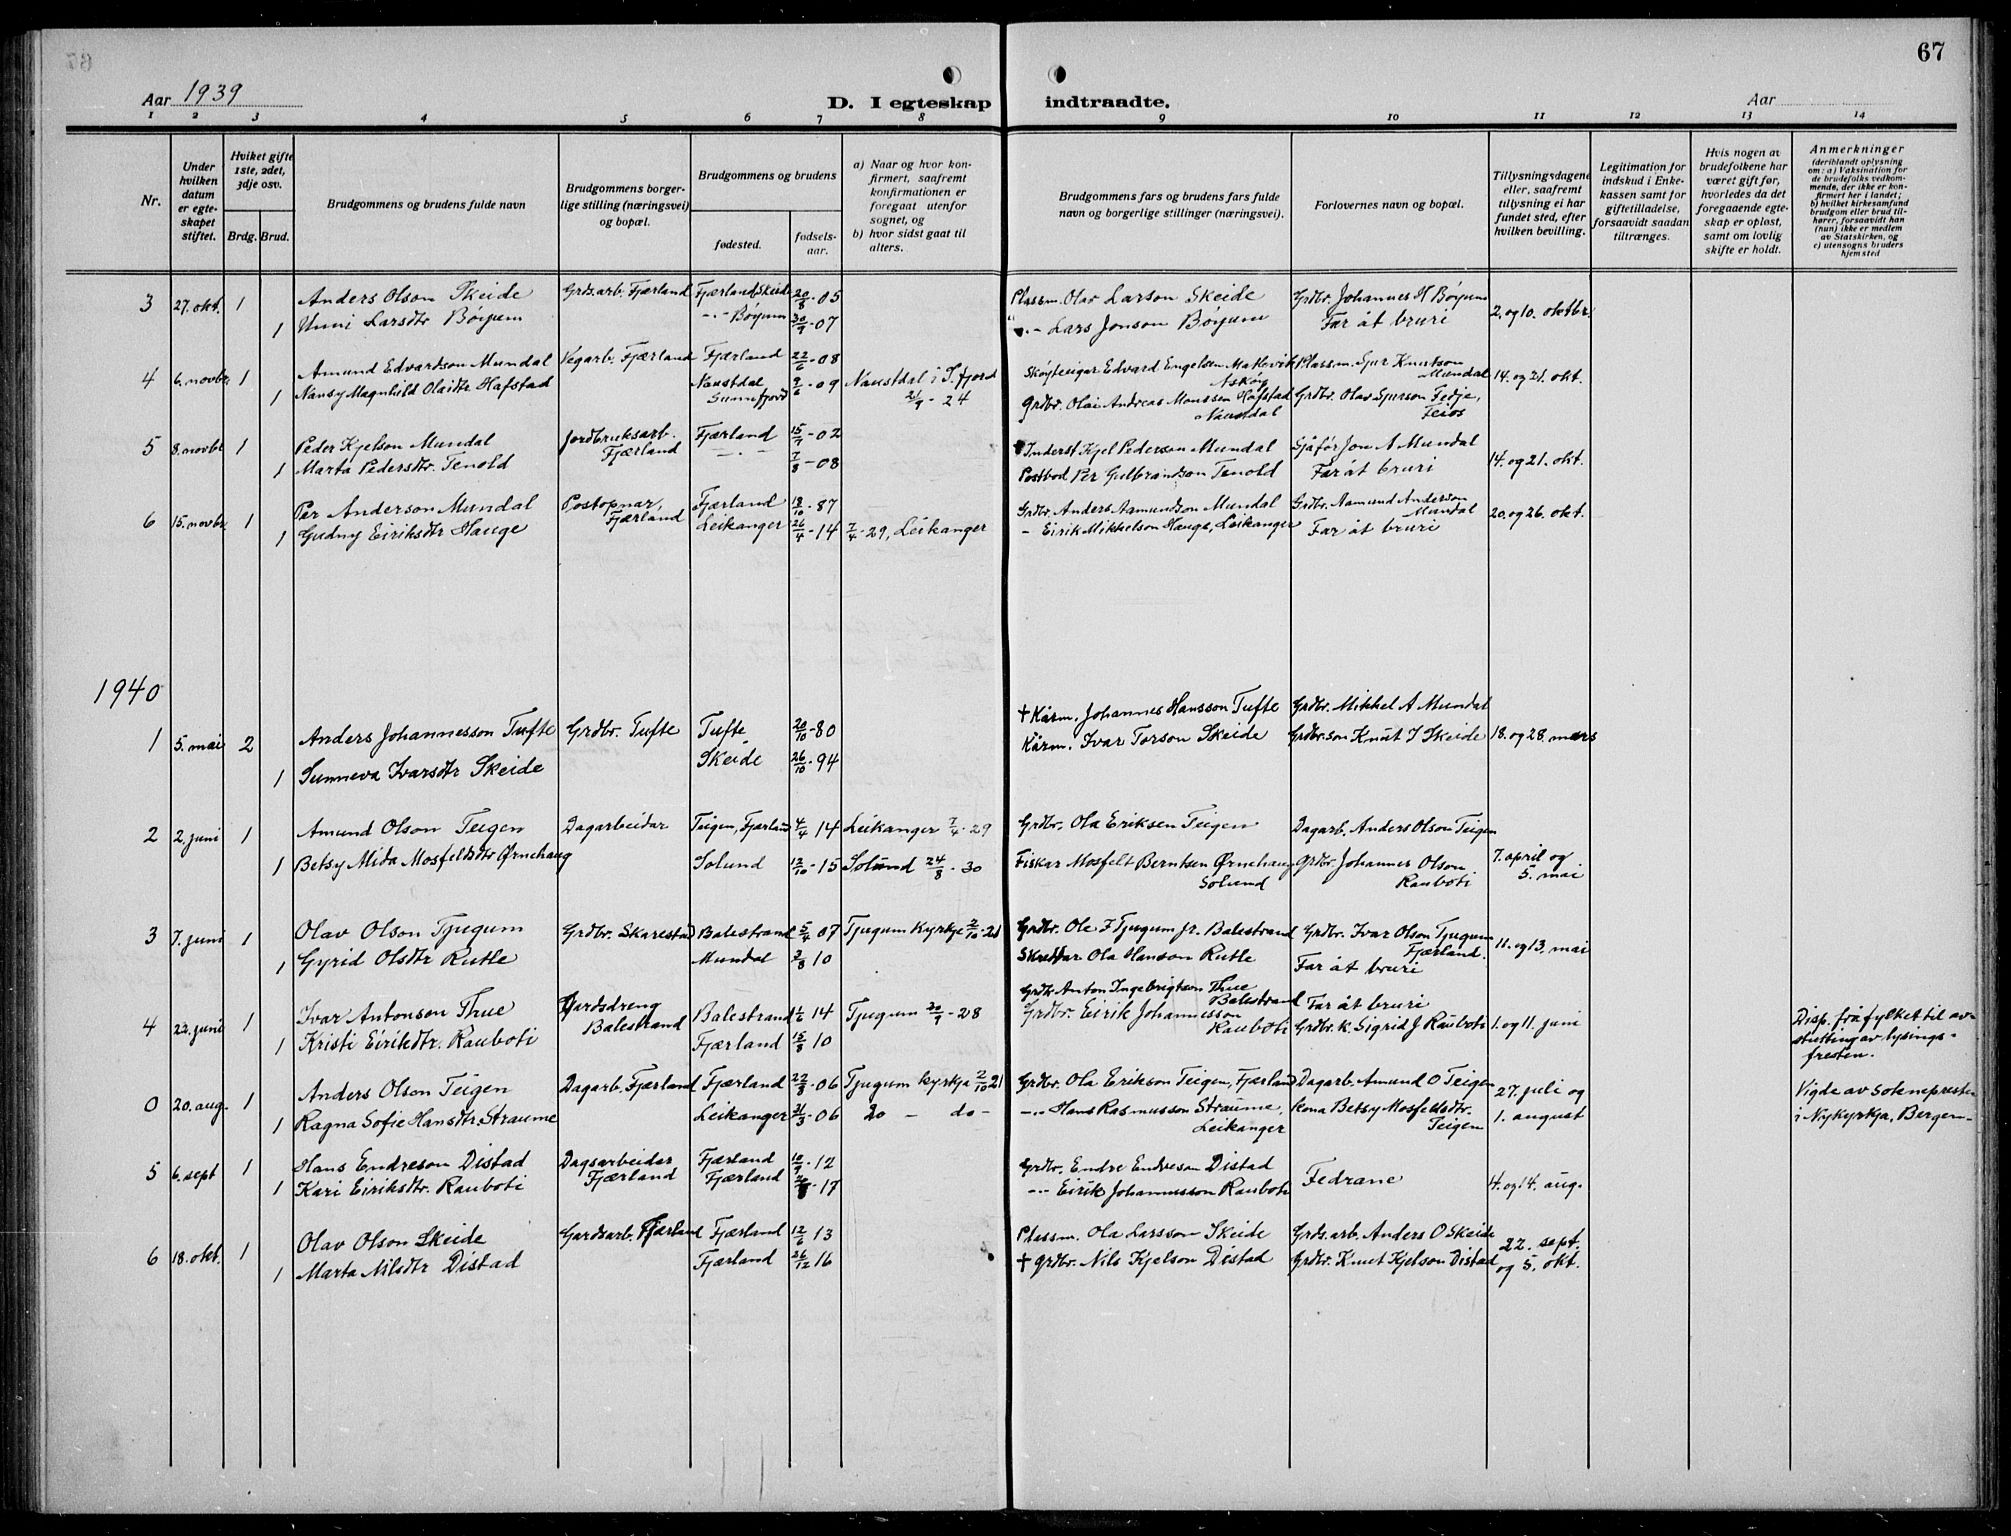 67
Aar 1939
D. I egteskap indtraadte.
Aar
1 2 3 4 5 6 7 8 9 10 11 12 13 14
Nr.
Under hvilken datum er egteskapet stiftet.
Hviket gifte 1ste, 2det, 3dje osv.
Brdg. Brud.
Brudgommens og brudens fulde navn
Brudgommens borgerlige stilling (næringsvei) og bopæl.
Brudgommens og brudens
fødested.
fødselsaar.
a) Naar og hvor konfirmert, saafremt konfirmationen er foregaat utenfor sognet, og
b) hvor sidst gaat til alters.
Brudgommens fars og brudens fars fulde navn og borgerlige stillinger (næringsvei).
Forlovernes navn og bopæl.
Tillysningsdagene eller, saafremt tillysning ei har fundet sted, efter hvilken bevilling.
Legitimation for indskud i Enkekassen samt for giftetilladelse, forsaavidt saadan tiltrænges.
Hvis nogen av brudefolkene har været gift før, hvorledes da det foregaaende egteskap er opløst, samt om lovlig skifte er holdt.
Anmerkninger (deriblandt oplysning om: a) Vaksination for de brudefolks vedkommende, der ikke er konfirmert her i landet; b) hvilket kirkesamfund brudgom eller brud tilhører, forsaavidt han (hun) ikke er medlem av Statskirken, og c) utensogns bruders hjemsted
3 27. okt. 1 Anders Olson Skeide Grds.arb. Fjærland Fjærland, Skeide 20/8-05 Plassm. Olav Larson Skeide Grdbr. Johannes H Bøyum 2. og 10. oktbr.
1 Unni Larsdtr Bøyum -"- Bøyum 30/9-07 -"- Lars Jonson Bøyum Far åt bruri
4 6. novbr 1 Amund Edvardson Mundal Vegarb. Fjærland Fjærland 22/6-08 Skøyteeigar Edvard Engelsen Askøy Plassm. Sjur Knutson Mundal 14. og 21. okt.
1 Nansy Magnhild Olaidtr Hafstad Naustdal Sunnfjord 9/6-09 Naustdal i S. fjord 21/9-24 Grdbr. Olai Andreas Monssen Hafstad Naustdal Grdbr. Olav Sjurson Fedje, Feios
5 8. novbr 1 Peder Kjelson Mundal Jordbruksarb. Fjærland Fjærland 15/7-02 Inderst Kjel Pederson Mundal Sjåfør Jon A Mundal 14. og 21. okt.
1 Marta Pedersdtr. Tenold -"- 7/8-08 Postbod Per Gulbrandson Tenold Far åt bruri
6 15. novbr 1 Per Anderson Mundal Postopnar, Fjærland Fjærland 18/10-87 Grdbr. Anders Aamundson Mundal Grdbr. Aamund Anderson Mundal 20. og 26. okt.
1 Gudny Eiriksdtr Hauge Leikanger 26/4-14 7/4-29, Leikanger - Eirik Mikkelson Hauge, Leikanger Far åt bruri
1940
1 5. mai 2 Anders Johannesson Tufte Grdbr. Tufte Tufte 20/10-80 † Kårm. Johannes Hansson Tufte Grdbr. Mikkel A Mundal
1 Sunneva Ivarsdtr Skeide Skeide 26/10-94 Kårm. Ivar Torson Skeide Grdbr.son Knut I Skeide 18. og 28. mars
2 2. juni 1 Amund Olson Teigen Dagarbeidar Teigen, Fjærland 4/4 14 Leikanger 7/4-29 Grdbr. Ola Eriksen Teigen Dagarb. Anders Olson Teigen
1 Betsy Mida Mosfeldtdtr Ørnehaug Solund 12/10-15 Solund 24/8-30 Fiskar Mosfelt Berntsen Ørnehaug Solund Grdbr. Johannes Olson Rauboti 7. april og 5. mai
3 7. juni 1 Olav Olson Tjugum Grdbr. Skarestad Balestrand 5/4 07 Tjugum Kyrkje 2/10-21 Grdbr. Ole I Tjugum jr. Balestrand Grdbr. Ivar Olson Tjugum Fjærland. 11. og 13. mai
1 Gyrid Olsdtr Rutle Mundal 3/8 10 Skreddar Ola Hanson Rutle Far åt bruri
4 22. juni 1 Ivar Antonson Thue Gardsdreng Balestrand Balestrand 1/6 14 Tjugum 30/9-28 Grdbr. Anton Ingebrigtson Thue Balestrand Far åt bruri
1 Kristi Eirikdtr. Rauboti Fjærland 15/8 10 Grdbr. Eirik Johannesson Rauboti Grdbr. k. Sigrid J Rauboti 1. og 11. juni Disp. frå fylket til avstutting av lysingsfresten.
0 20. aug. 1 Anders Olson Teigen Dagarb. Fjærland Fjærland 22/8-06 Tjugum kyrkja 2/10 21 Grdbr. Ola Erikson Teigen, Fjærland Dagarb. Amund O Teigen 27. juli og Vigde av soknepresten
1 Ragna Sofie Hansdtr. Straume Leikanger 21/3-06 20 - do - -"- Hans Rasmusson Straume, Leikanger kona Betsy Mosfeltdtr. Teigen 1. august i Nykyrkja, Bergen-
5 6. sept 1 Hans Endreson Distad Dagsarbeidar Fjærland Fjærland 10/9-12 Grdbr. Endre Endreson Distad Fedrane 4. og 14. aug.
1 Kari Eiriksdtr. Rauboti Fjærland -17 -"- Eirik Johannesson Rauboti
6 18. okt. 1 Olav Olson Skeide Gardsarb. Fjærland Fjærland 12/6 13 Plassm. Ola Larsson Skeide Grds.arb. Anders O Skeide 22. sept.
1 Marta Nilsdtr Distad Fjærland 26/12 16 † Grdbr. Nils Kjelson Distad Grdbr. Knut Kjelson Distad og 5. okt.